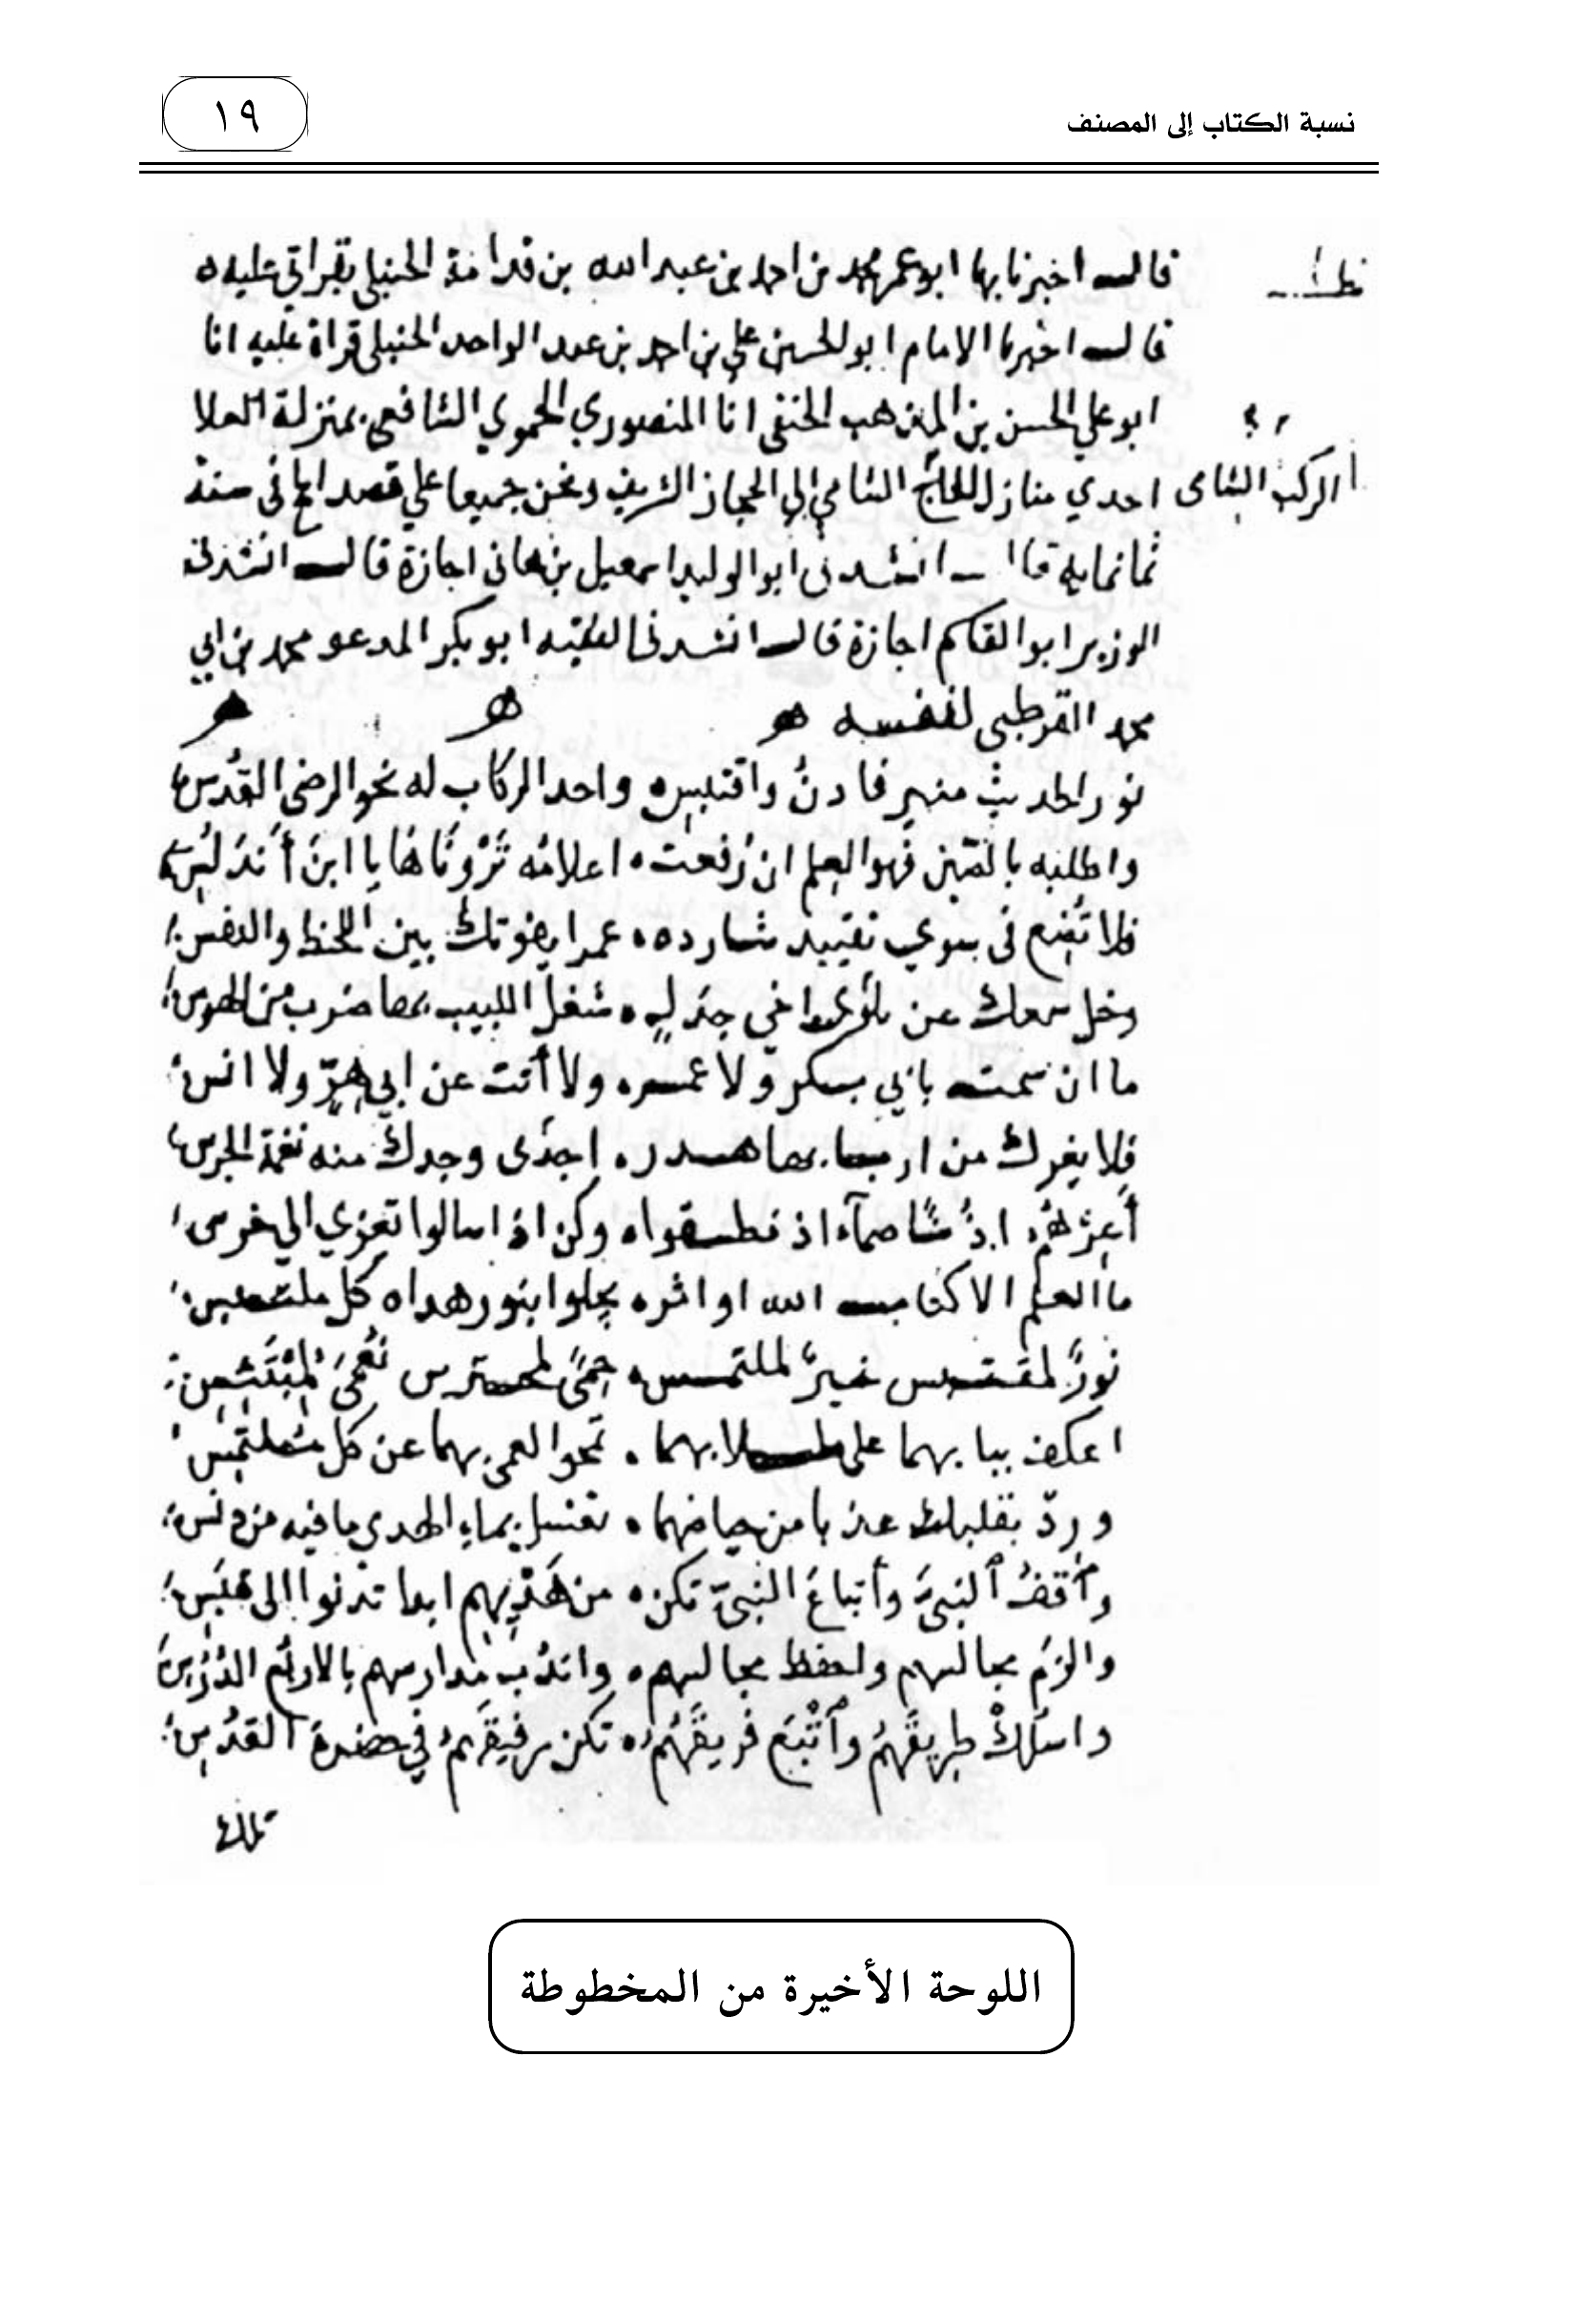 نسبة الكتاب إلى المصنف
١٩
قال اخبرنا بها ابو عمر محمد بن احمد بن عبد الله بن قدامة الحنبلي بقراتي عليه
قال اخبرنا الامام ابو الحسن علي بن احمد بن عبد الواحد الحنبلي قراة عليه انا
ابو علي الحسن بن المذهب الحنفي انا المنصوري الحموي الشافعي بمنزلة العلا
الركب الشامى
احدي منازل الحاج الشامي الي الحجاز الشريف ونحن جميعا علي قصد الحج فى سنة
ثمانمايه قال انشدنى ابو الوليد اسمعيل بن هانى اجازة قال انشدنى
الوزير ابو القاسم اجازة قال انشدنى الفقيه ابو بكر المدعو محمد بن ابي
محمد القرطبى لنفسه
نور الحديث منير فادنُ واقتبس واحد الركاب له نحو الرضى القدُس
واطلبه بالصين فهو العلم ان رُفعت اعلامُه تَرْونَاهَا يا ابن أندلس
فلا تُضع فى سوي تقييد شارده عمرا يفوتك بين اللحظ والنفس
وخل سمعك عن اخي جدَلٍ شغل اللبيب بها ضرب من الهوس
ما ان سمت بابي بكر ولا عمر ولا أتت عن ابي هرّ ولا انس
فلا يغرك من اربابها هدر اجدَى وجدك منه نغمة الجرس
أعرهم اذنا صمآء اذ نطقوا وكن اذا سالوا تعزي الي خرس
ما العلم الا كتاب الله او اثر يجلوا بنور هداه كل ملتبس
نورٌ لمقتبس خيرٌ لملتمس حمىً لمحترس نُعْمَى لمُبْتَئِس
اعكف ببابهما على طلابهما تمحو العمى بهما عن كل ملتمس
ورِدْ بقلبك عذبا من حياضهما تغسل بماء الهدى ما فيه من دنس
وٱقفُ ٱلنبىَّ وأتباعَ النبىّ تكن من هَدْيِهم ابدا تدنوا الى قبس
والزم مجالسهم واحفظ مجالسهم واندُب مدارسهم بالاربُع الدُّرُس
واسلك طريقَهُم وٱتْبَع فريقَهُم تكن رفيقَهم في حضرة القُدُس
تلك
اللوحة الأخيرة من المخطوطة